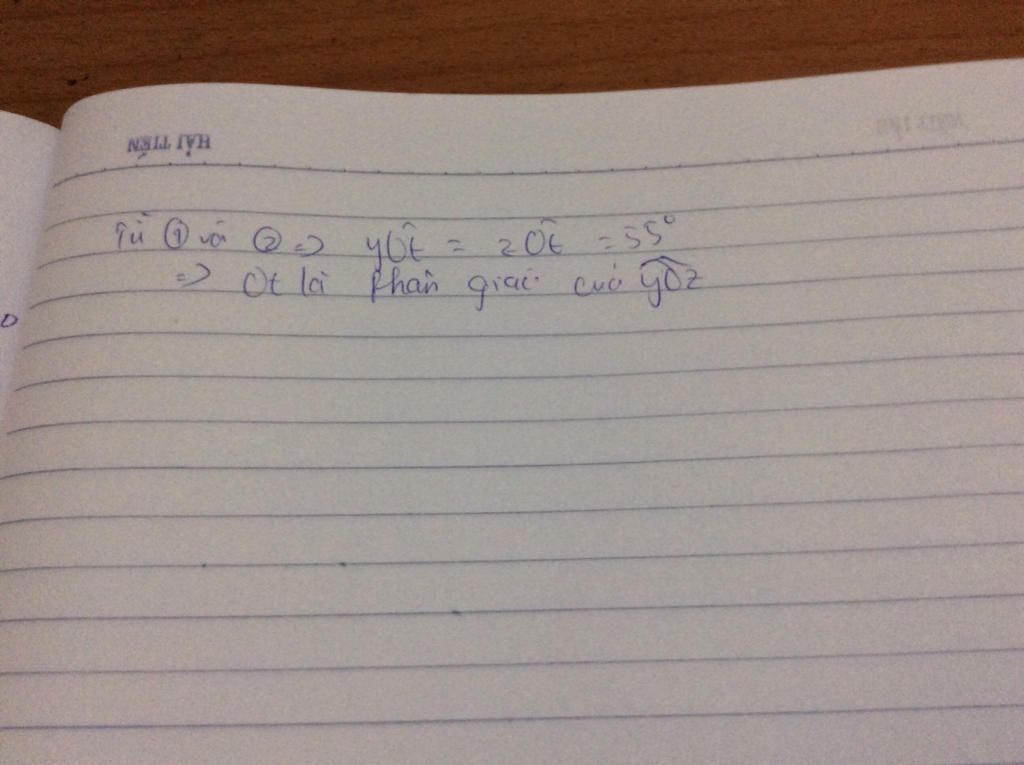 HẢI TIẾN
Từ ① và ② => yÔt = zÔt = 55°
=> Ot là phân giác của yÔz